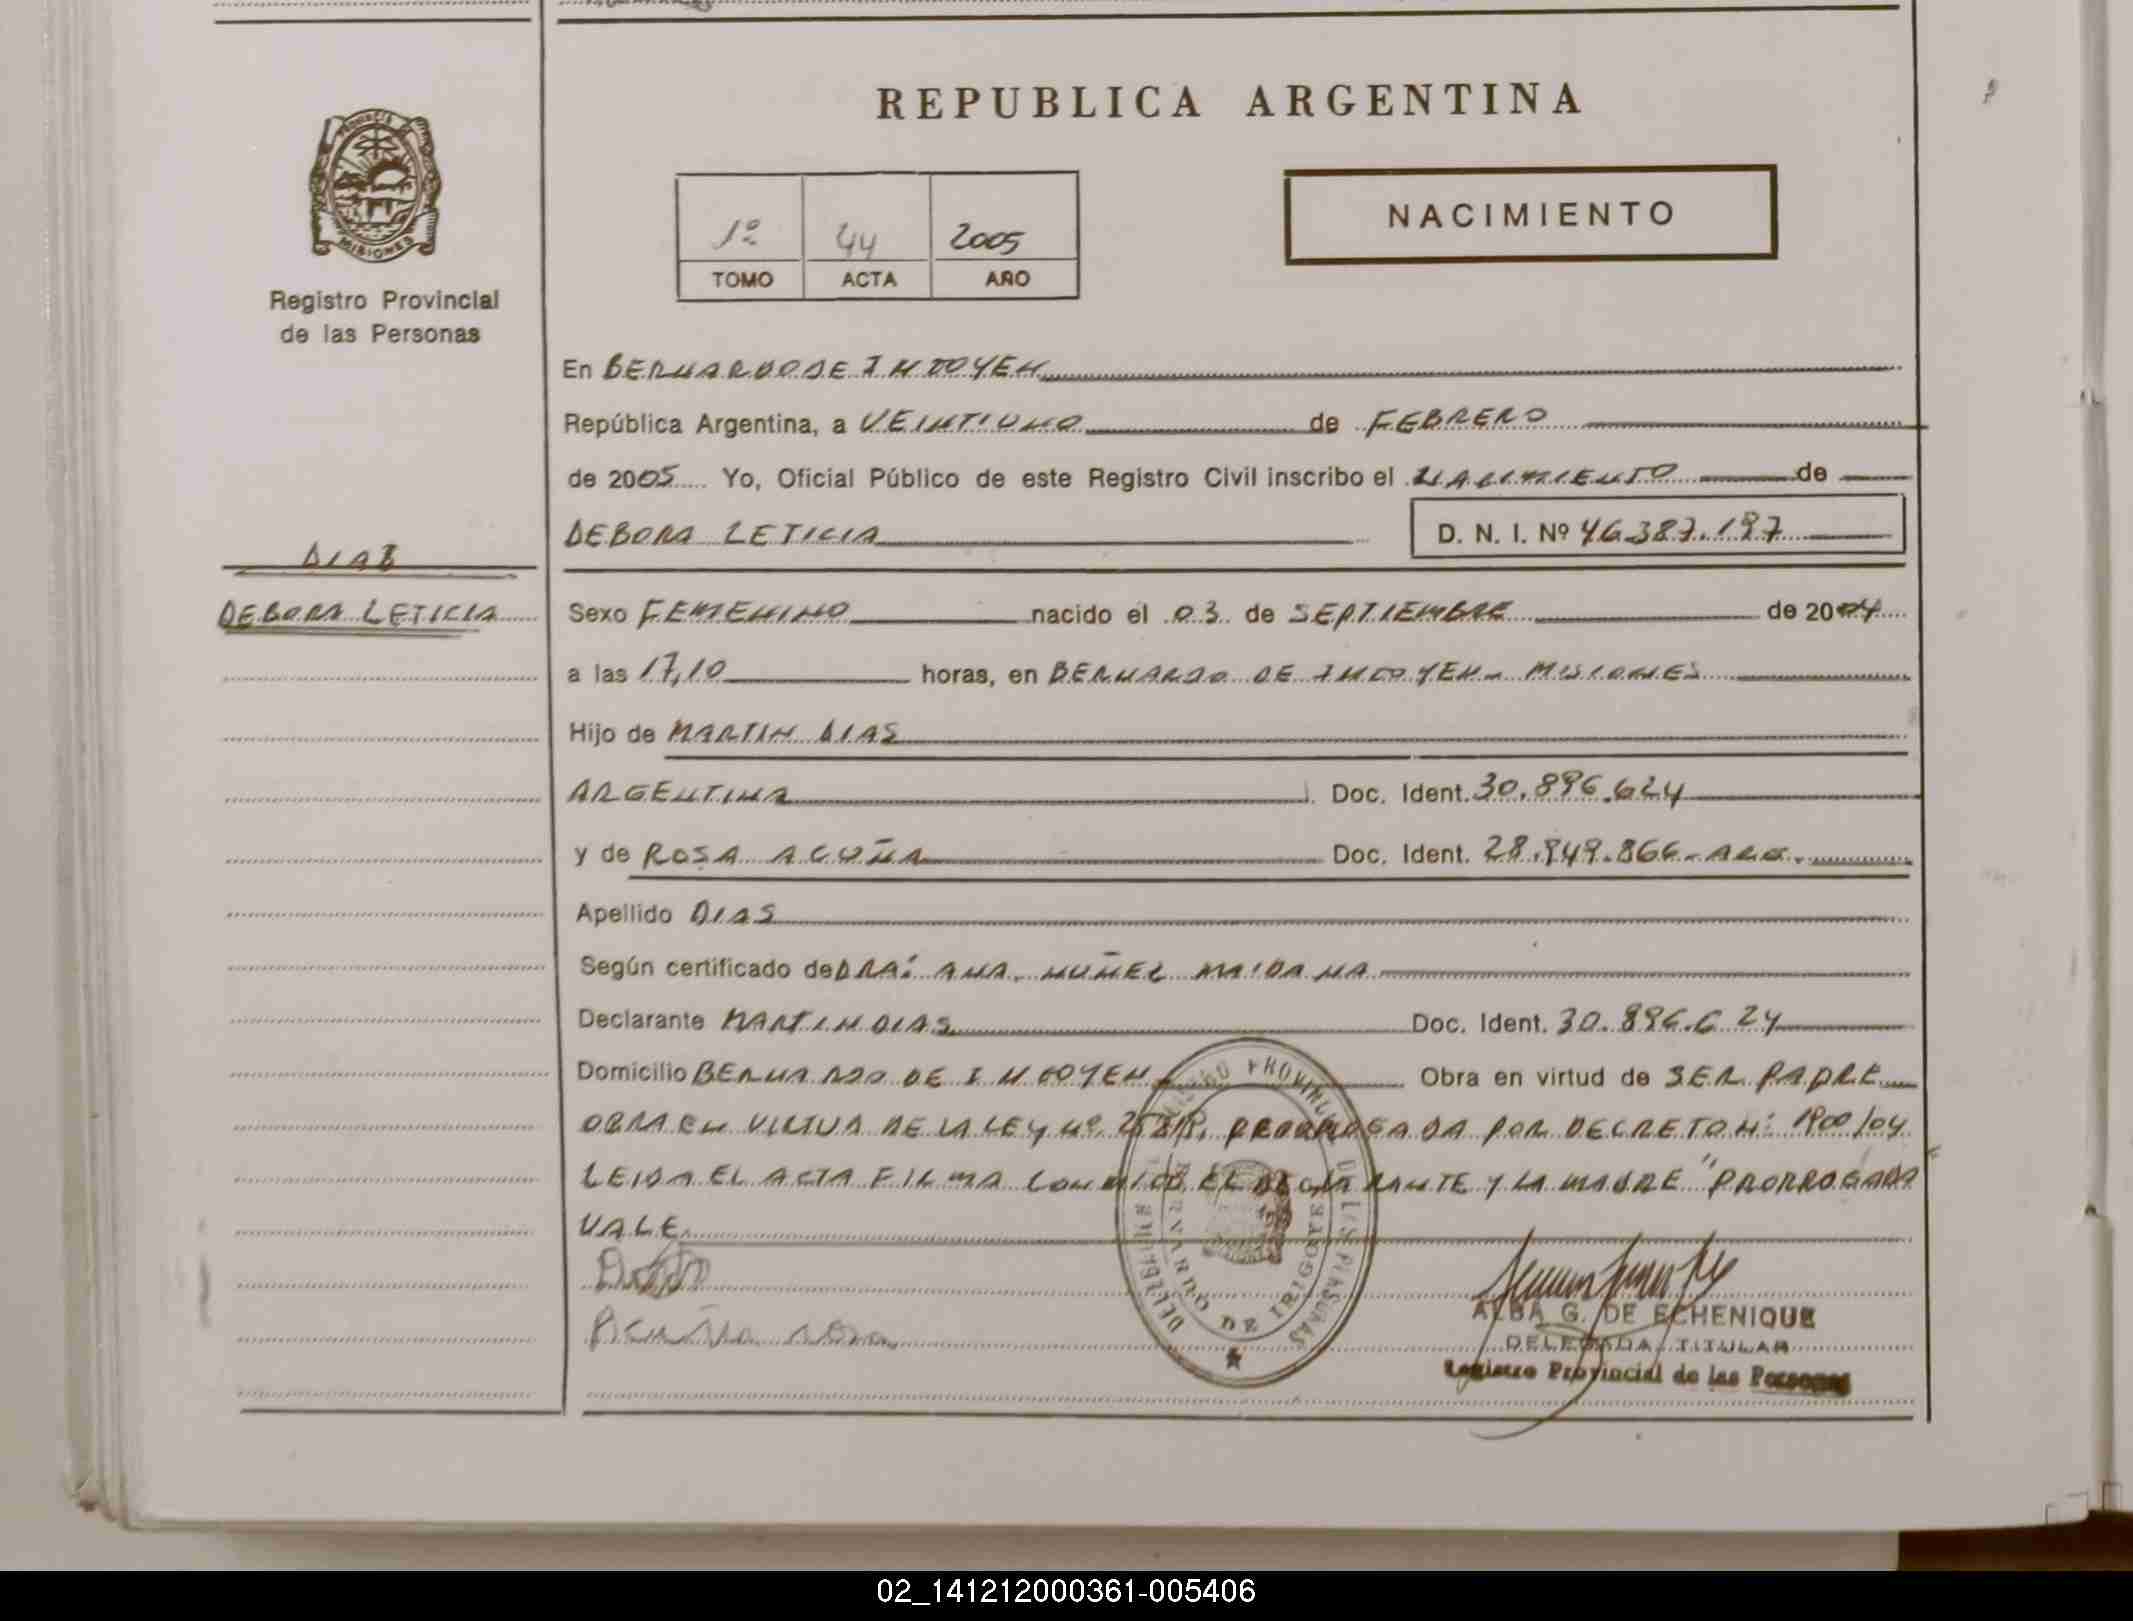 REPUBLICA ARGENTINA
PROVINCIA
MISIONES
Registro Provincial
de las Personas
1º 44 2005
TOMO ACTA AÑO
NACIMIENTO
En BERNARDO DE IRIGOYEN
República Argentina, a VEINTIUNO de FEBRERO
de 2005 Yo, Oficial Público de este Registro Civil inscribo el NACIMIENTO de
DEBORA LETICIA D. N. I. Nº 46.387.197
DIAS
DEBORA LETICIA
Sexo FEMENINO nacido el 03 de SEPTIEMBRE de 2004
a las 17,10 horas, en BERNARDO DE IRIGOYEN - MISIONES
Hijo de MARTIN DIAS
ARGENTINA Doc. Ident. 30.896.624
y de ROSA ACUÑA Doc. Ident. 28.849.866 - ARG.
Apellido DIAS
Según certificado de DRA: ANA NUÑEZ MAIDANA
Declarante MARTIN DIAS Doc. Ident. 30.896.624
Domicilio BERNARDO DE IRIGOYEN Obra en virtud de SER PADRE
OBRA EN VIRTUD DE LA LEY Nº PRORROGADA POR DECRETO N: 1900/04
LEIDA EL ACTA FIRMA CONMIGO EL DECLARANTE Y LA MADRE "PRORROGADA
VALE
Acuña rosa
REGISTRO PROVINCIAL DE LAS PERSONAS
BERNARDO DE IRIGOYEN
ALBA G. DE ECHENIQUE
DELEGADA TITULAR
Registro Provincial de las Personas
02_141212000361-005406